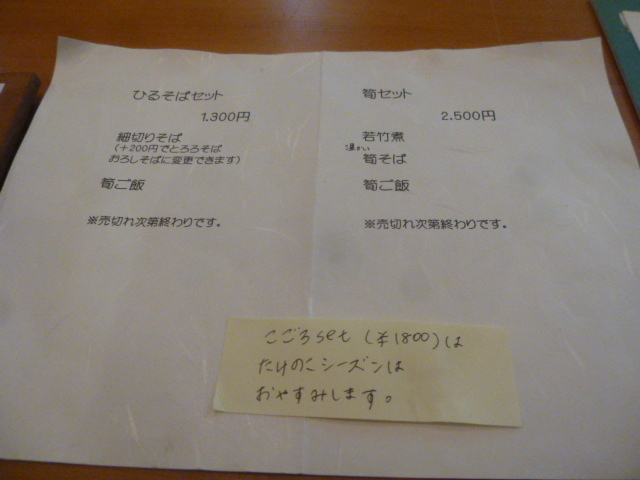 ひるそばセット
1.300円
細切りそば
(+200円でとろろそば
おろしそばに変更できます)
筍ご飯
※売切れ次第終わりです。
筍セット
2.500円
若竹煮
温かい
筍そば
筍ご飯
※売切れ次第終わりです。
こごろset (¥1800)は
たけのこシーズンは
おやすみします。